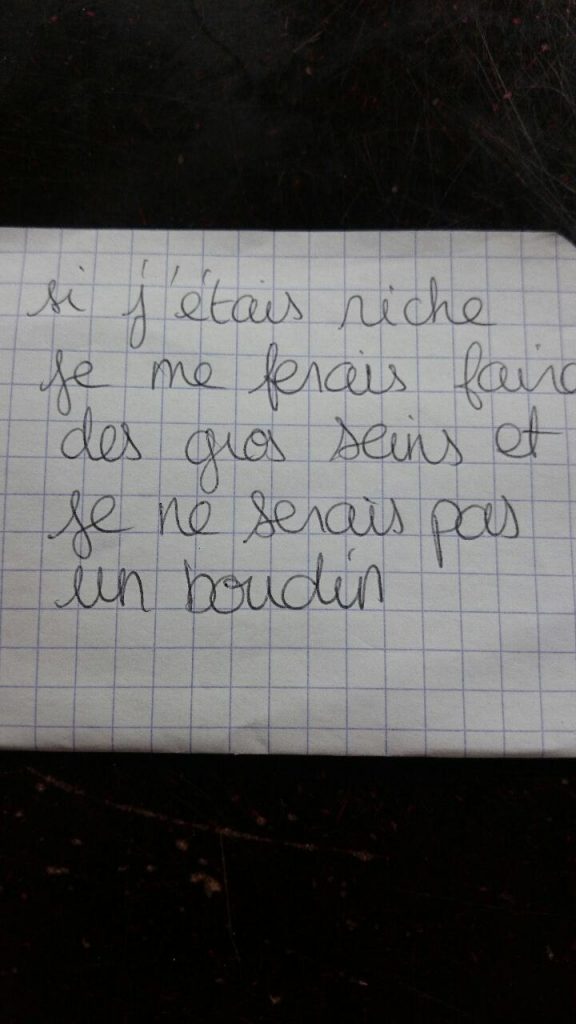 si j'étais riche
je me ferais faire
des gros seins et
je ne serais pas
un boudin